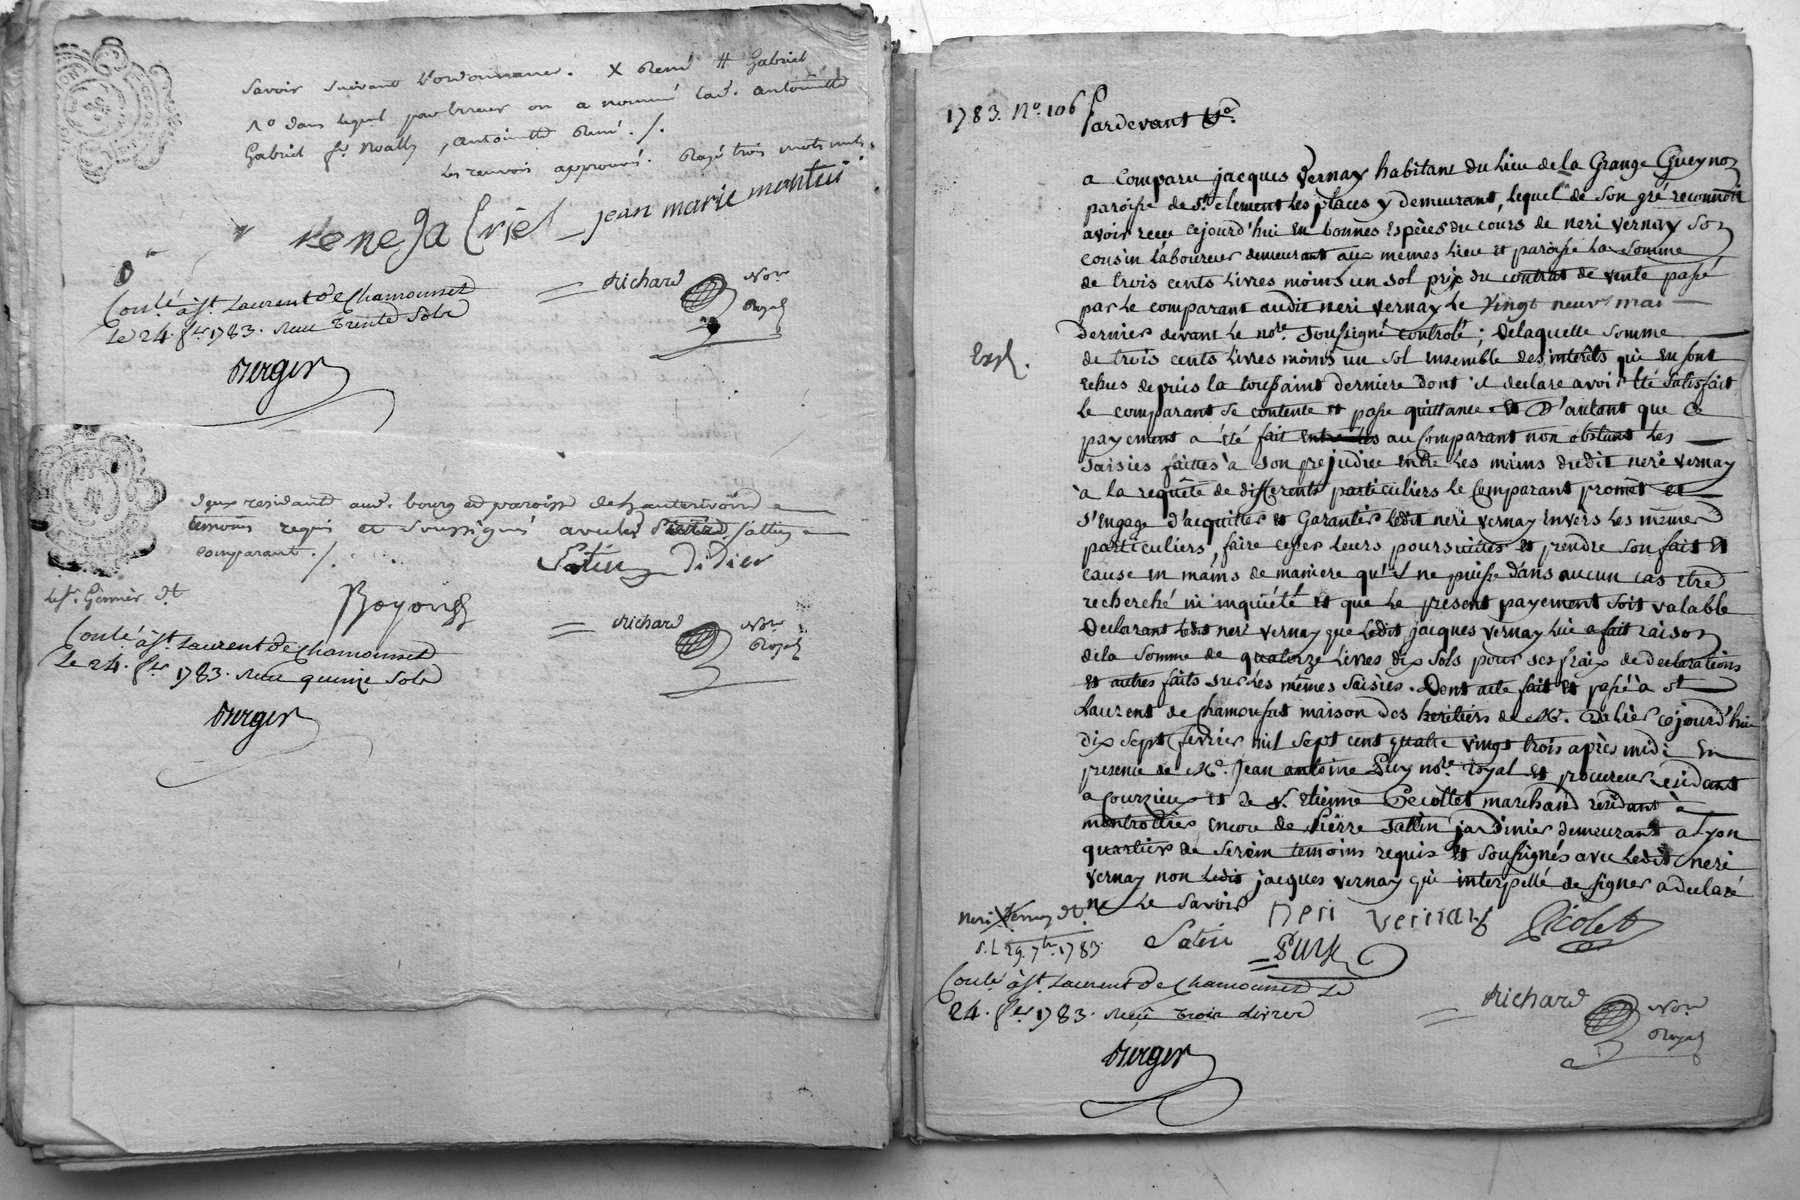 Savoir suivant l'ordonnance. X René # Gabriel
no dans lequel par erreur on a nommé lad. antoinette
Gabriel fe Noally, antoinette René ./.
les renvois approuvé. Rayé trois mots nuls.
rene Ga briel jean marie monteii
= Richard Nore
Royal
Conlé à st. Laurent de Chamousset
Le 24. fer 1783. Reçu trente Sols
Berger
deux residant aud. bourg et paroisse de hauterivoire
temoins requis et soussignés avec led
comparant ./.
Satin Didier
Boyond
= Richard Nore
Royal
Conlé à st. Laurent de Chamousset
Le 24. fer 1783. Reçu quinze Sols
Berger
1783. No. 106 Pardevant &a.
a comparu jacques Vernay habitant du Lieu de la Grange Gueynon
paroisse de st. clement les places y demeurant, lequel de son gré reconnoit
avoir reçu cejourd'hui en bonnes espèces du cours de neri vernay son
cousin laboureur demeurant aux mêmes lieu et paroisse la somme
de trois cents livres moins un sol prix du contrat de vente passé
par le comparant audit neri vernay le vingt neuf mai
dernier devant le nore. soussigné controlé ; de laquelle somme
Exp.
de trois cents livres moins un sol ensemble des interêts qui en sont
echus depuis la toussaint derniere dont il declare avoir été satisfait
le comparant se contente et passe quittance et d'autant que ce
payement a été fait au comparant non obstant les
saisies faittes à son prejudice entre les mains dudit neri vernay
à la requête de differents particuliers le comparant promet et
s'engage d'acquitter et garantir ledit neri vernay envers les mêmes
particuliers, faire cesser leurs poursuittes et prendre son fait et
cause en mains de maniere qu'il ne puisse dans aucun cas être
recherché ni inquiété et que le present payement soit valable
declarant ledit neri vernay que ledit jacques vernay lui a fait raison
de la somme de quatorze livres dix sols pour ses fraix de declarations
et autres faits sur les mêmes saisies. Dont acte fait et passé à st
Laurent de chamousset maison des heritiers de Me. cejourd'hui
dix sept fevrier mil sept cent quatre vingt trois après midi en
presence de Me. jean antoine Puy nore. royal et procureur residant
a courzieux et de sr. etienne Pecollet marchand residant à
montrottier encore de Pierre Sattin jardinier demeurant à Lyon
quartier de Serein temoins requis et soussignés avec ledit neri
vernay non ledit jacques vernay qui interpellé de signer a declaré
ne le savoir
neri vernay
Satin Puy
s.L 29. 7bre 1783
Conlé à st. Laurent de Chamousset Le
24. fer 1783. Reçu trois Livres
= Richard Nore
Royal
Berger